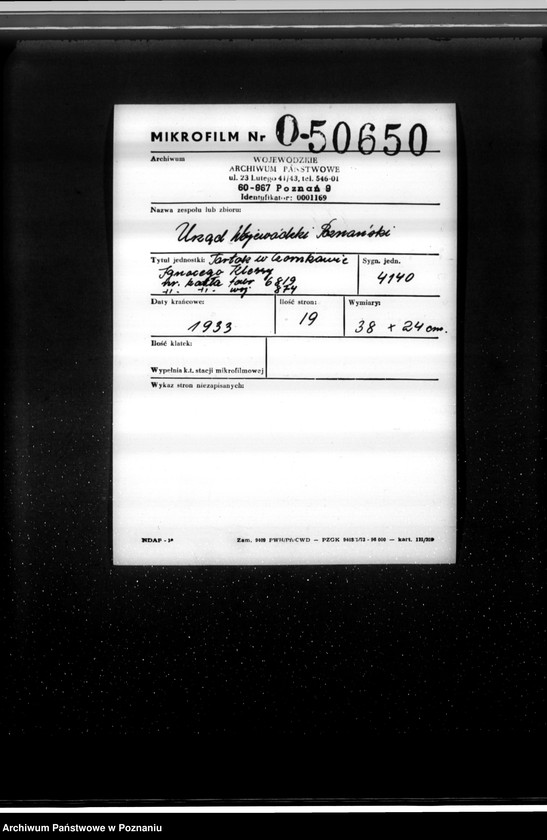 MIKROFILM Nr O-50650
Archiwum
WOJEWÓDZKIE
ARCHIWUM PAŃSTWOWE
ul. 23 Lutego 41/43, tel. 546-01
60-967 Poznań 9
Identyfikator: 0001169
Nazwa zespołu lub zbioru:
Urząd Wojewódzki Poznański
Tytuł jednostki: Tartak w
Ignacego
nr. kotła fabr 6819
-"- -"- woj 874
Sygn. jedn.
4140
Daty krańcowe:
1933
Ilość stron:
19
Wymiary:
38 x 24 cm.
Ilość klatek:
Wypełnia k.t. stacji mikrofilmowej
Wykaz stron niezapisanych:
NDAP -
Archiwum Państwowe w Poznaniu